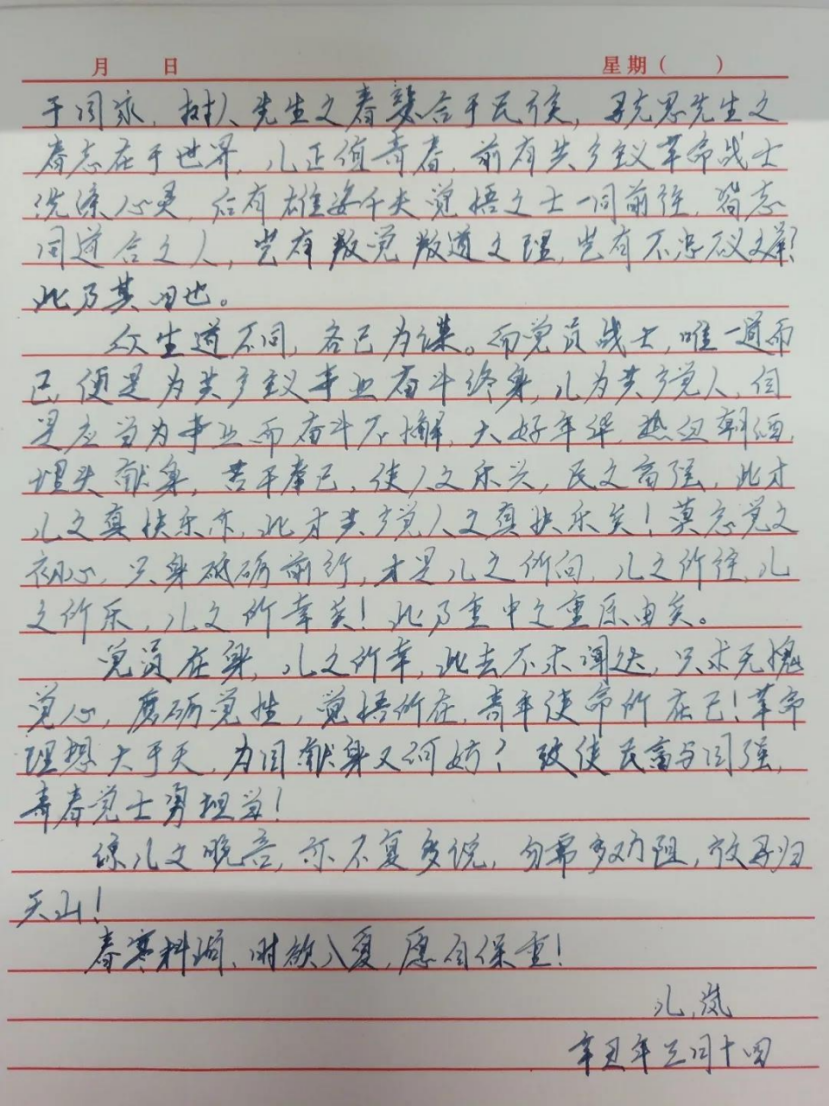 月 日 星期( )
于国家,树人先生之春独合于民族,马克思先生之
春志在于世界,儿正值青春,前有共产主义革命战士
洗涤心灵,后有雄姿千夫觉悟之士一同前往,皆志
同道合之人,岂有叛党叛道之理,岂有不忠不议之罪?
此乃其四也。
众生道不同,各己为谋。而党员战士,唯一道而
已,便是为共产主义事业奋斗终身,儿为共产党人,
是应当为事业而奋斗不懈,大好年华,热血朝洒,
埋头献身,苦干奉己,使人文乐兴,民之富强,此才
儿之真快乐亦,此才共产党人之真快乐矣!莫忘党之
初心,只身砥砺前行,才是儿之所向,儿之所往,儿
之所乐,儿之所幸矣!此乃重中之重原由矣。
党员在身,儿之所幸,此去不求闻达,只求无愧
党心,磨砺党性,觉悟所在,青年使命所在已!革命
理想大于天,为国献身又何妨?致使民富与国强,
青春党士勇担当!
谅儿之晚音,亦不复多说,勿需多劝阻,放马归
天山!
春寒料峭,时欲入夏,愿自保重!
儿,岚
辛丑年三月十四